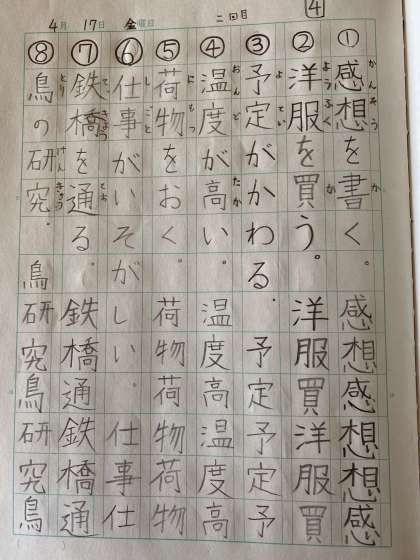 4
4月 17日 金曜日 二回目
かんそう か
①感想を書く。感想感想想感
ようふく か
②洋服を買う。洋服買洋服買
よてい
③予定がかわる。予定予定予
おんど たか
④温度が高い。温度高温度高
にもつ
⑤荷物をおく。荷物荷物荷物
しごと
⑥仕事がいそがしい。仕事仕
とお
⑦鉄橋を通る。鉄橋通鉄橋通
とり けんきゅう
⑧鳥の研究。鳥研究鳥研究鳥